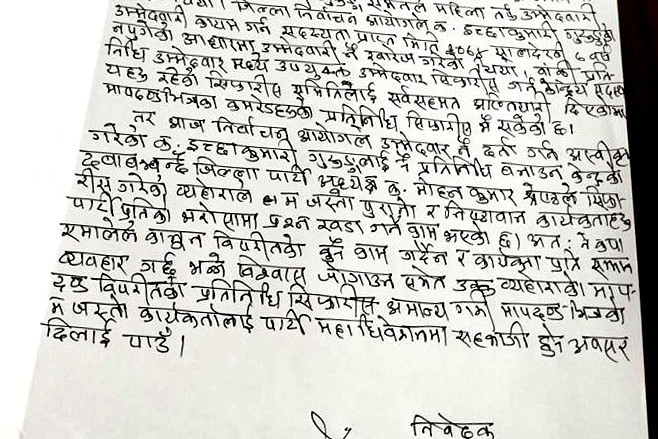 जिल्ला निर्वाचन आयोगले क. इच्छाकुमारी गुरुङको
उम्मेदवारी कायम गर्न सदस्यता प्राप्त मिति २०६५ सालदेखी ८ वर्ष
नपुगेको आधारमा उम्मेदवारी नै खारेज गरेको थियो, बाँकी प्रति-
निधि उम्मेदवार मध्ये उपयुक्त उम्मेदवार सिफारिस गर्न केन्द्रीय सदस्य
रहेको सिफारिस समितिलाई सर्वसहमत
मापदण्डभित्रका कमरेडहरुको प्रतिनिधि सिफारिस नै सकेको छ।
तर आज निर्वाचन आयोगले उम्मेदवार नै दर्ता गर्न अस्वीकृत
गरेको क. इच्छाकुमारी गुरुङलाई नै प्रतिनिधि बनाउन केन्द्रको
दबाब जिल्ला पार्टी अध्यक्ष क. मोहन कुमार श्रेष्ठले सिफा-
रिस गरेको व्यहाराले म जस्ता पुरानो र निष्ठावान कार्यकर्ताहरु
पार्टी प्रतिको भरोसामा प्रश्न खडा गर्ने काम भएको छ। अतः नेकपा
एमालेले कानुन विपरीतको कुनै काम गर्दैन र कार्यकर्ता प्रति समान
व्यवहार गर्छ भन्ने विश्वास जोगाउन समेत उक्त व्यहाराको माप-
दण्ड विपरीतको प्रतिनिधि सिफारिस अमान्य गरी मापदण्ड भित्रको
म जस्तो कार्यकर्तालाई पार्टी महाधिवेशनमा सहभागी हुने अवसर
दिलाई पाउँ।
निवेदक